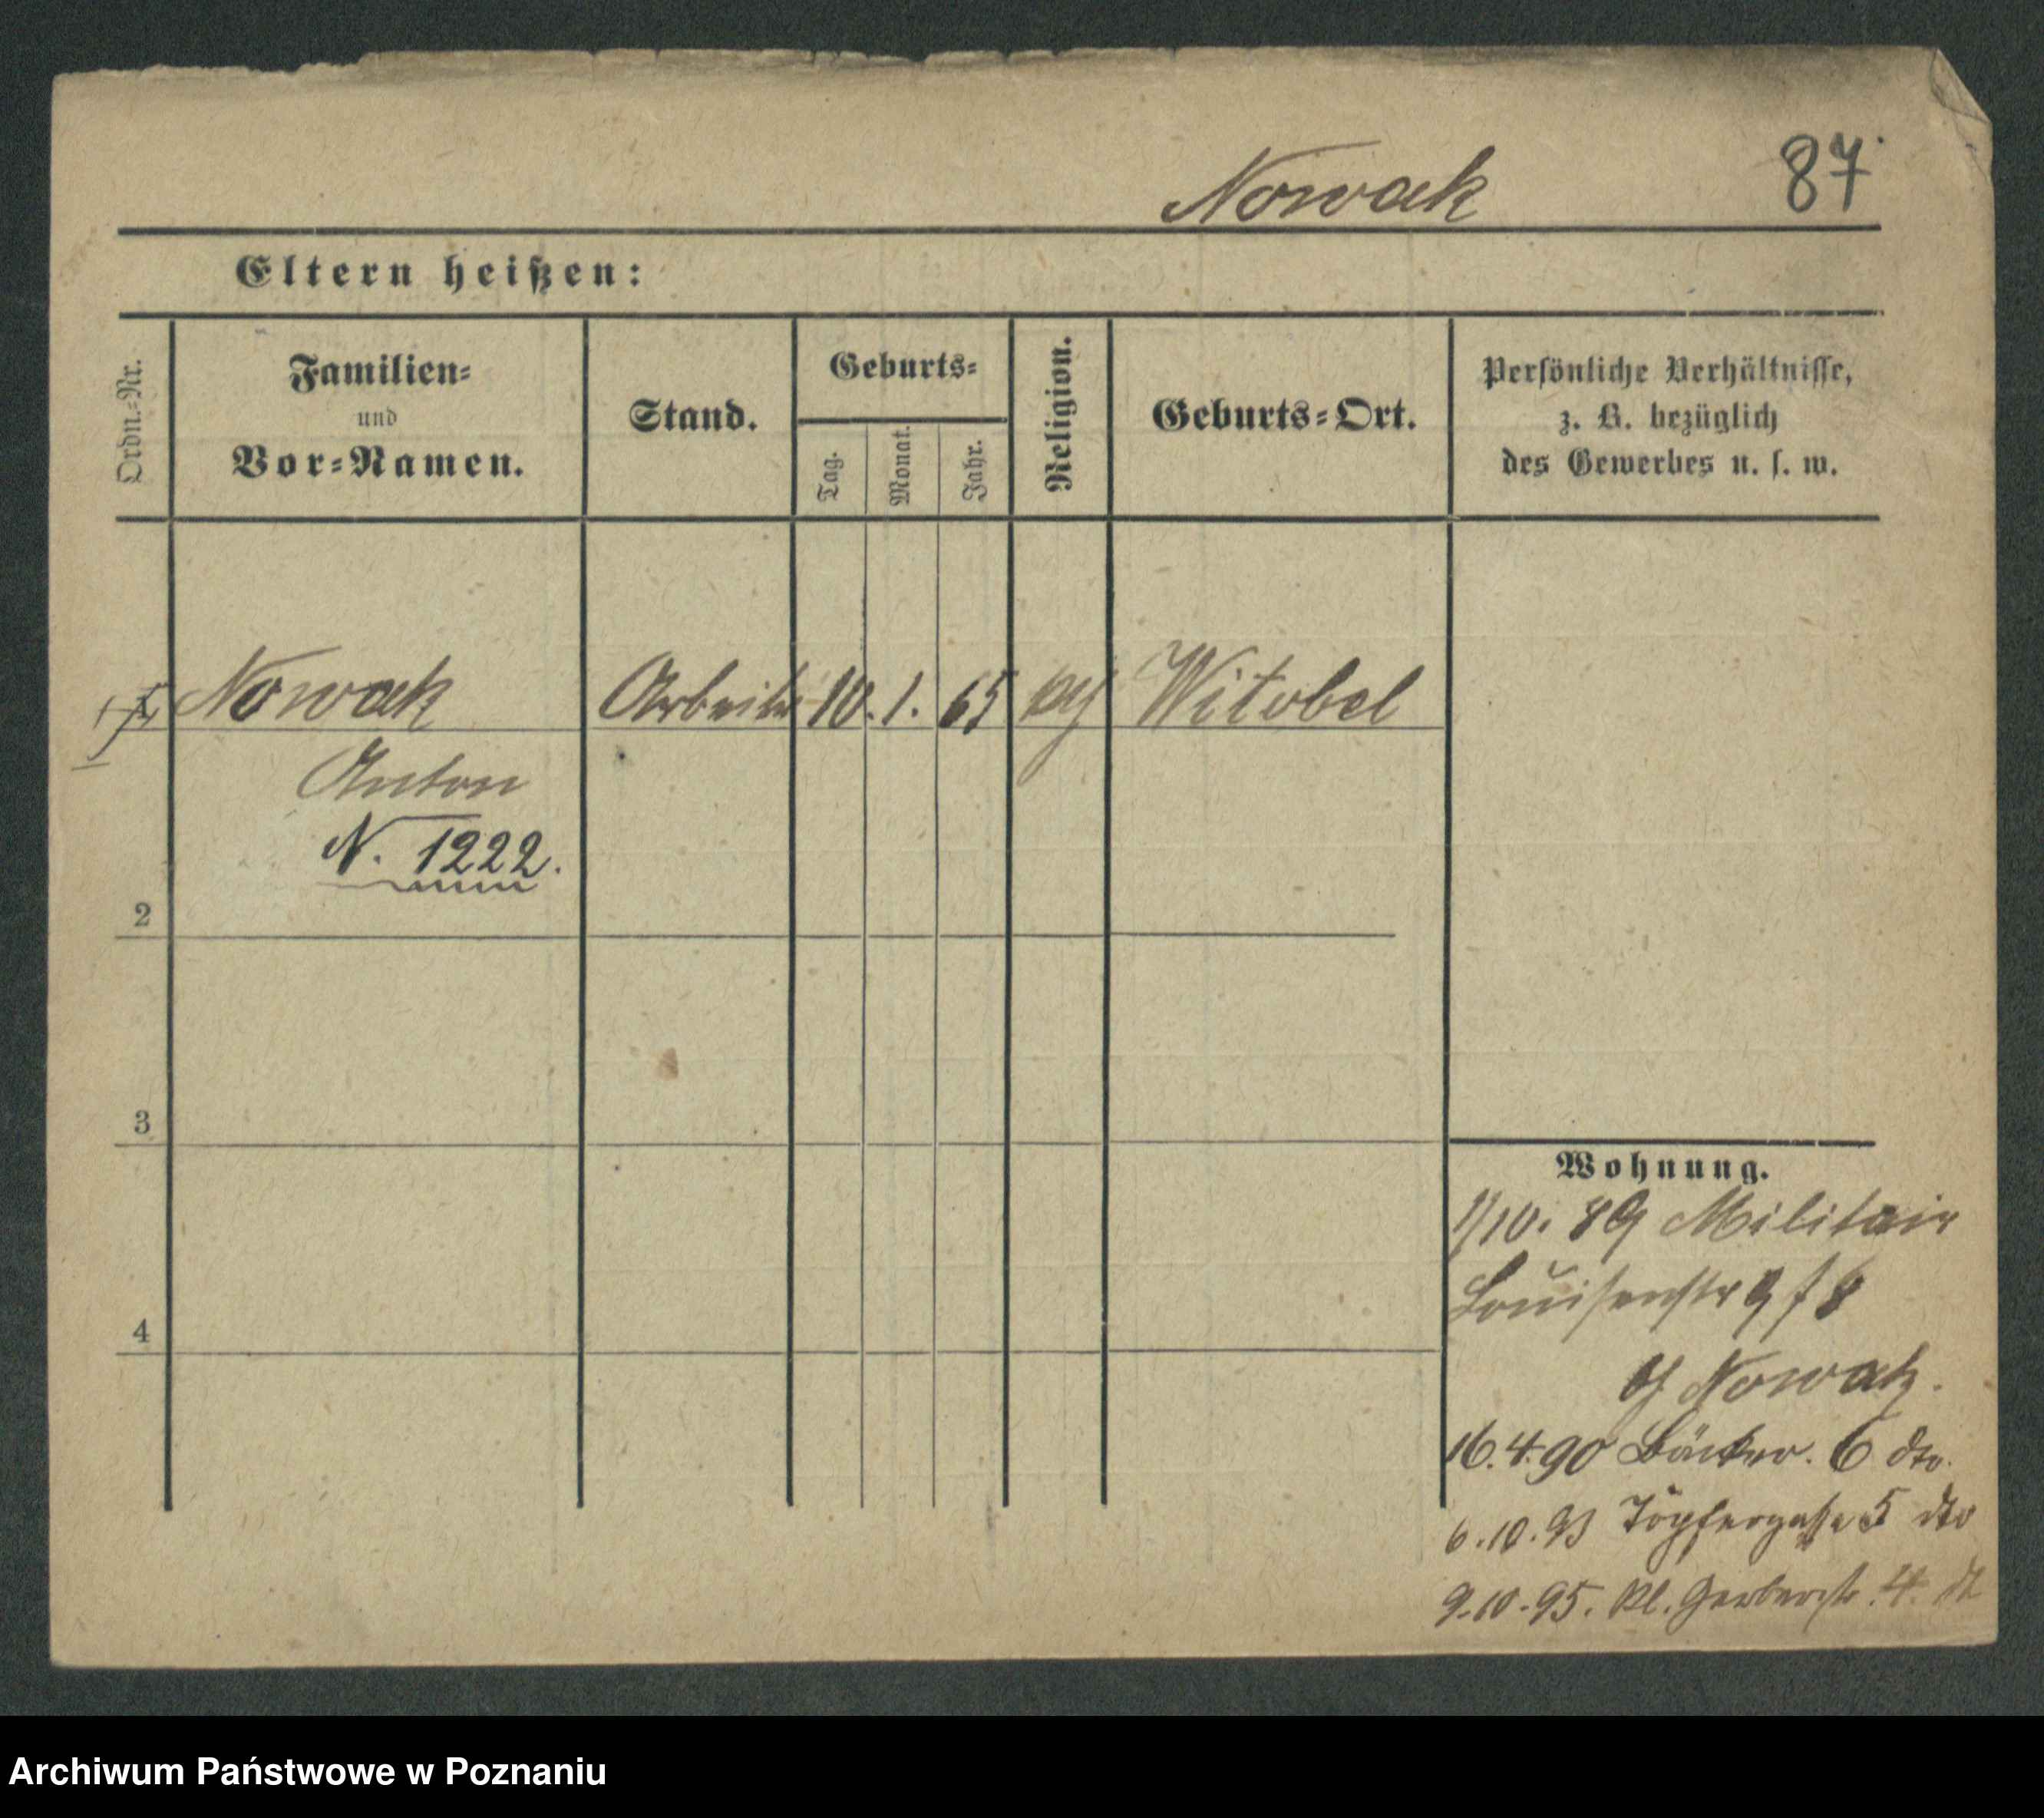 Nowak 87
Eltern heißen:
Ordn.-Nr.
Familien-
und
Vor-Namen.
Stand.
Geburts-
Tag.
Monat.
Jahr.
Religion.
Geburts-Ort.
Persönliche Verhältnisse,
z. B. bezüglich
des Gewerbes u. s. w.
Nowak Arbeiter 10. 1. 65 Witobel
Anton
N. 1222.
2
3
4
Wohnung.
1/10. 89 Militair
Louisenstr
Nowak.
16.4.90 Bäcker. 6 dto.
6.10.93 Töpfergasse 5 dto
9.10.95. Kl. Gerberstr. 4. dt
Archiwum Państwowe w Poznaniu